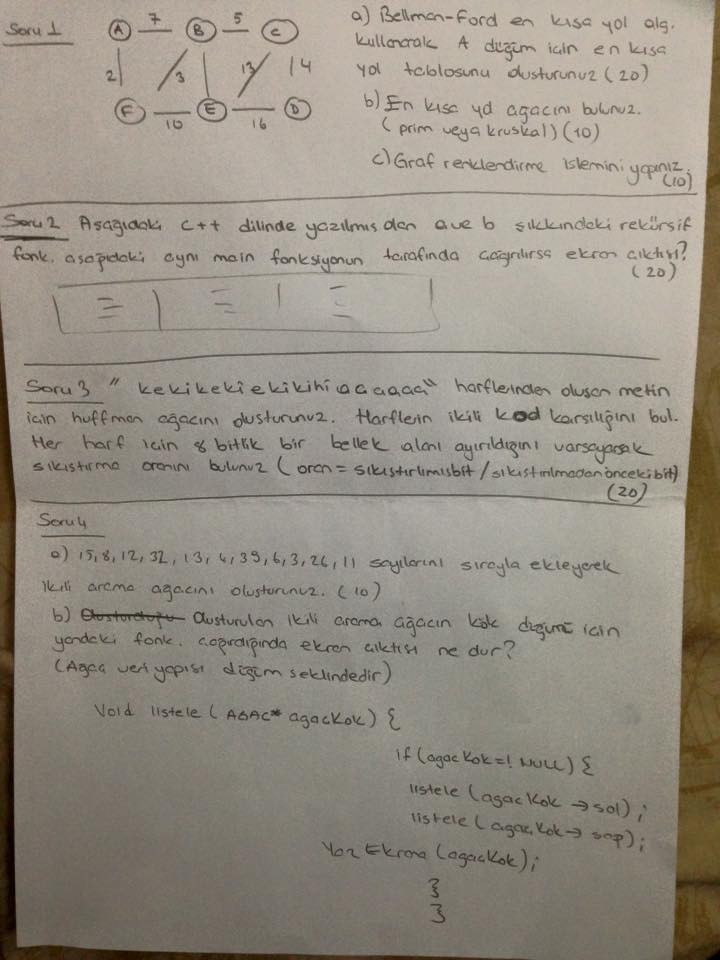 Soru 1
A 7 B 5 C
2 3 13 14
F 10 E 16 D
a) Bellman-Ford en kısa yol alg.
kullanarak A düğüm icin en kısa
yol tablosunu olusturunuz (20)
b) En kısa yol agacını bulunuz.
(prim veya kruskal) (10)
c) Graf renklendirme islemini yapınız.
(10)
Soru 2 Asağıdaki c++ dilinde yazılmıs olan a ve b sıkkındaki rekürsif
fonk. asağıdaki aynı main fonksiyonun tarafında cağrılırsa ekran cıktısı?
(20)
Soru 3 "kekikekiekikihiacaaaaa" harflerinden olusan metin
icin huffman ağacını olusturunuz. Harflerin ikili kod karsılığını bul.
Her harf icin 8 bitlik bir bellek alanı ayırıldığını varsayarak
sıkıstırma oranını bulunuz (oran = sıkıstırılmısbit / sıkıstırılmadanöncekibit)
(20)
Soru 4
a) 15, 8, 12, 32, 13, 4, 39, 6, 3, 26, 11 sayılarını sırayla ekleyerek
ikili arama ağacını olusturunuz. (10)
b) Olusturduğu Olusturulan ikili arama ağacın kök düğümü icin
yandaki fonk. cağırdığında ekran cıktısı ne dur?
(Ağac veri yapısı düğüm seklindedir)
Void listele (AGAC* agacKok) {
if (agacKok=! NULL) {
listele (agacKok → sol);
listele (agacKok → sag);
Yaz Ekrana (agacKok);
}
}